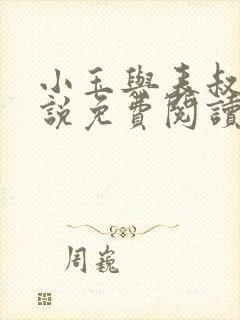 小玉與表叔
說免費閱讀
周巍